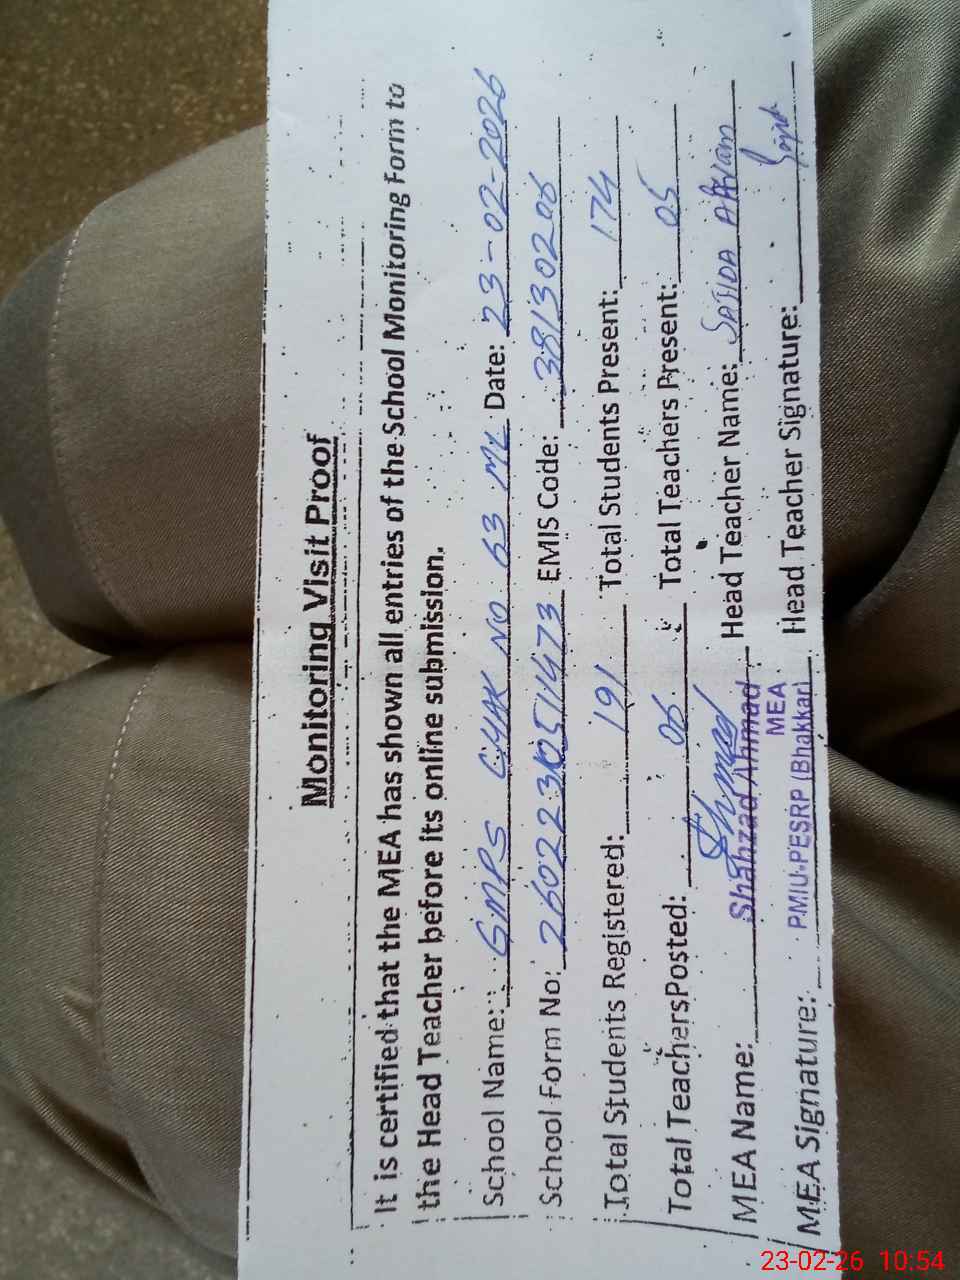 Monitoring Visit Proof
It is certified that the MEA has shown all entries of the School Monitoring Form to
the Head Teacher before its online submission.
School Name: GMPS CHAK NO 63 ML Date: 23-02-2026
School Form No: 2602231051473 EMIS Code: 38130206
Total Students Registered: 191 Total Students Present: 174
Total TeachersPosted: 06 Total Teachers Present: 05
MEA Name: Shahzad Ahmad Head Teacher Name: SAJIDA
MEA
MEA Signature: PMIU-PESRP (Bhakkar) Head Teacher Signature:
23-02-26 10:54